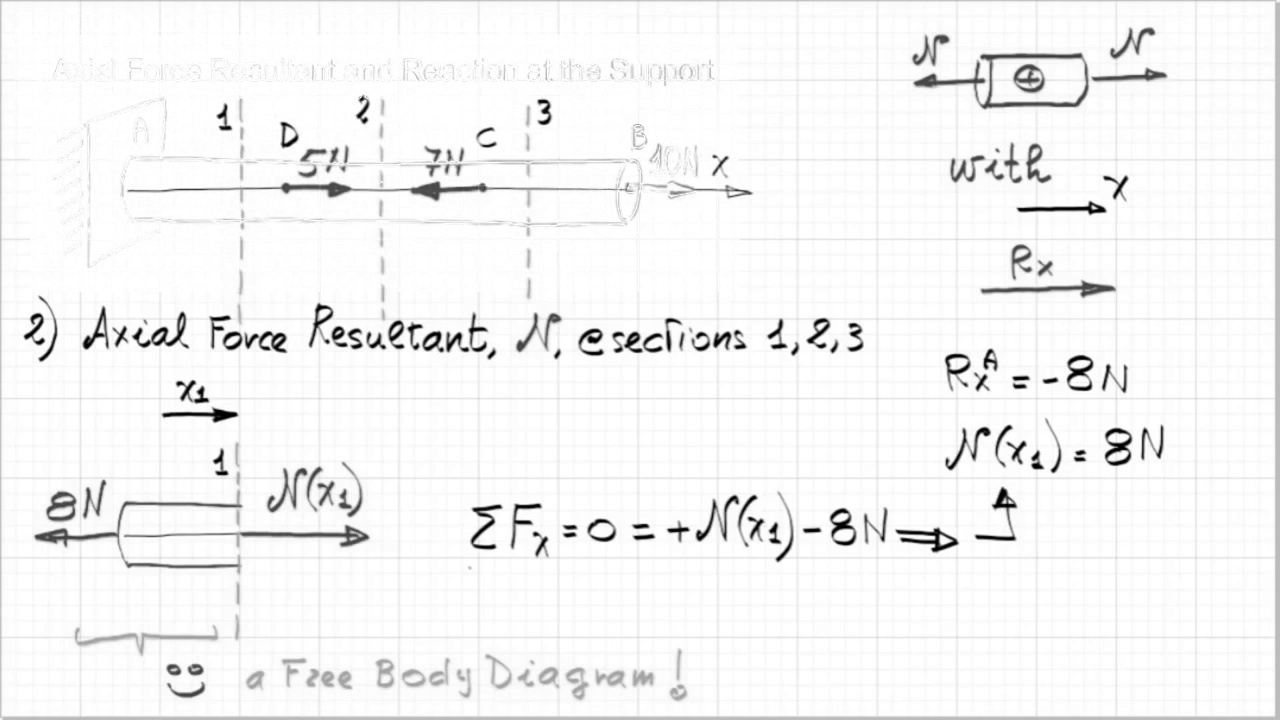 Axial Force Resultant and Reaction at the Support
N N
+
1 2 3
A D C B
5N 7N 10N x
with
x
Rx
2) Axial Force Resultant, N, @sections 1,2,3
x1
RxA = -8N
N(x1) = 8N
1
8N N(x1)
ΣFx = 0 = +N(x1) - 8N ⇒
a Free Body Diagram!